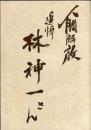 人間解放
追悼
林神一さん